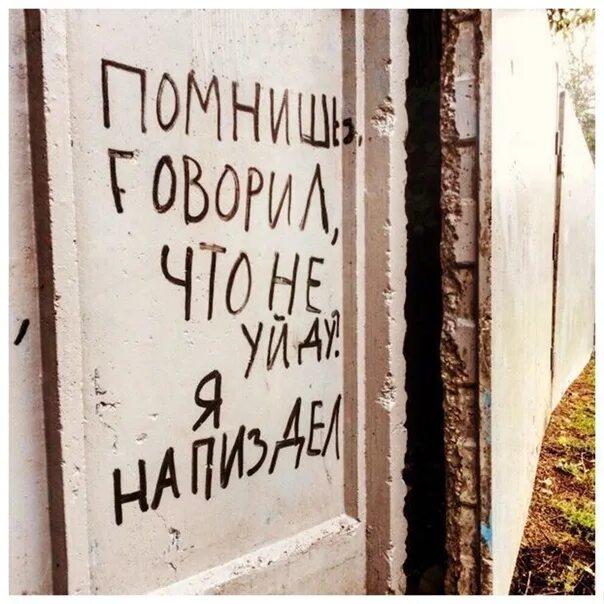 ПОМНИШЬ,
ГОВОРИЛ,
ЧТО НЕ
УЙДУ?
Я
НАПИЗДЕЛ